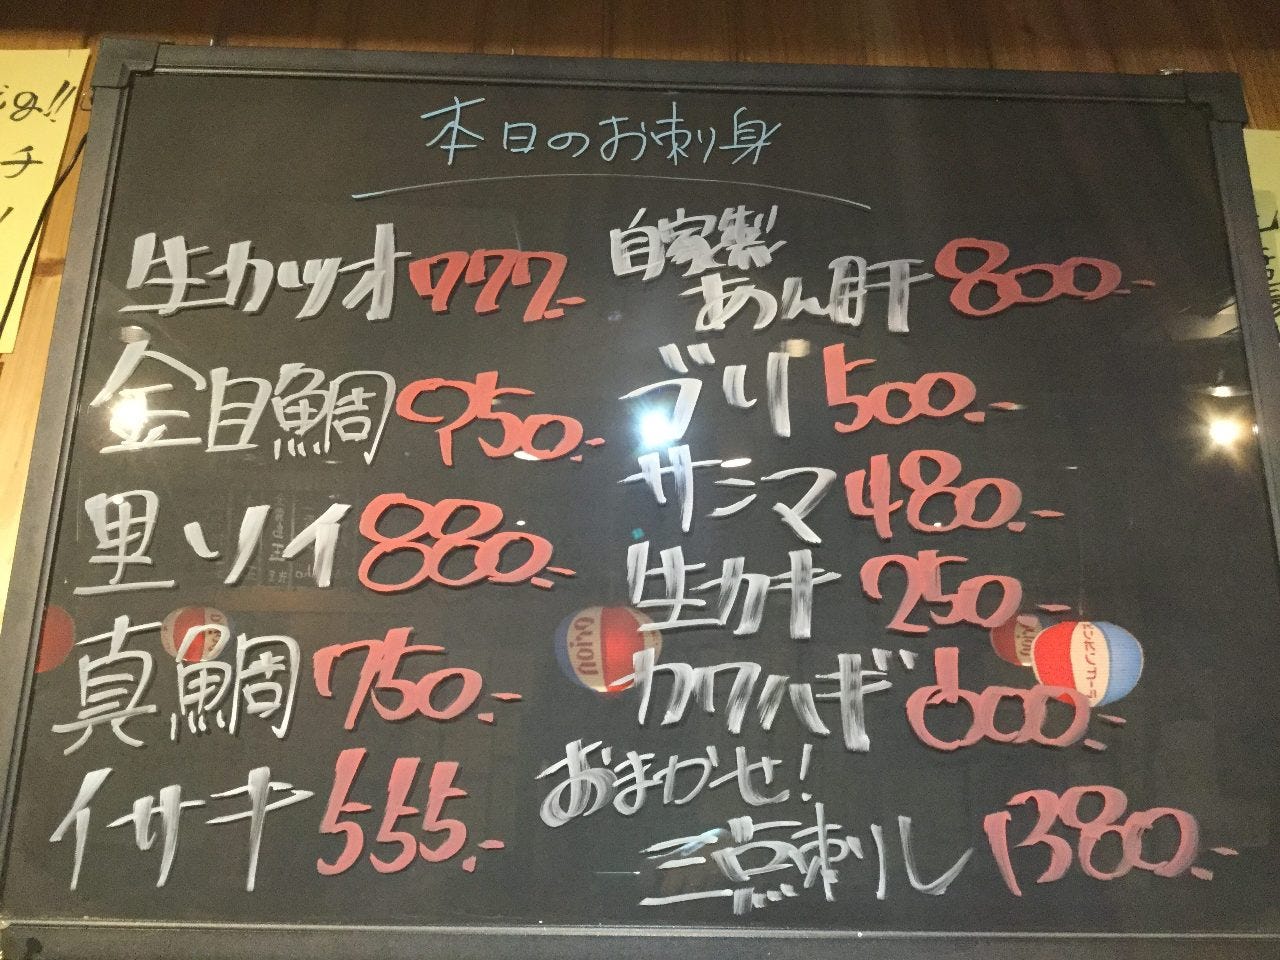 本日のお刺り身
生カツオ 777.-
金目鯛 950.-
里ソイ 880.-
真鯛 750.-
イサキ 555.-
自家製
あん肝 800.-
ブリ 500.-
サシマ 480.-
生カキ 250.-
カワハギ 600.-
おまかせ!
三点刺り し 1380.-
チ